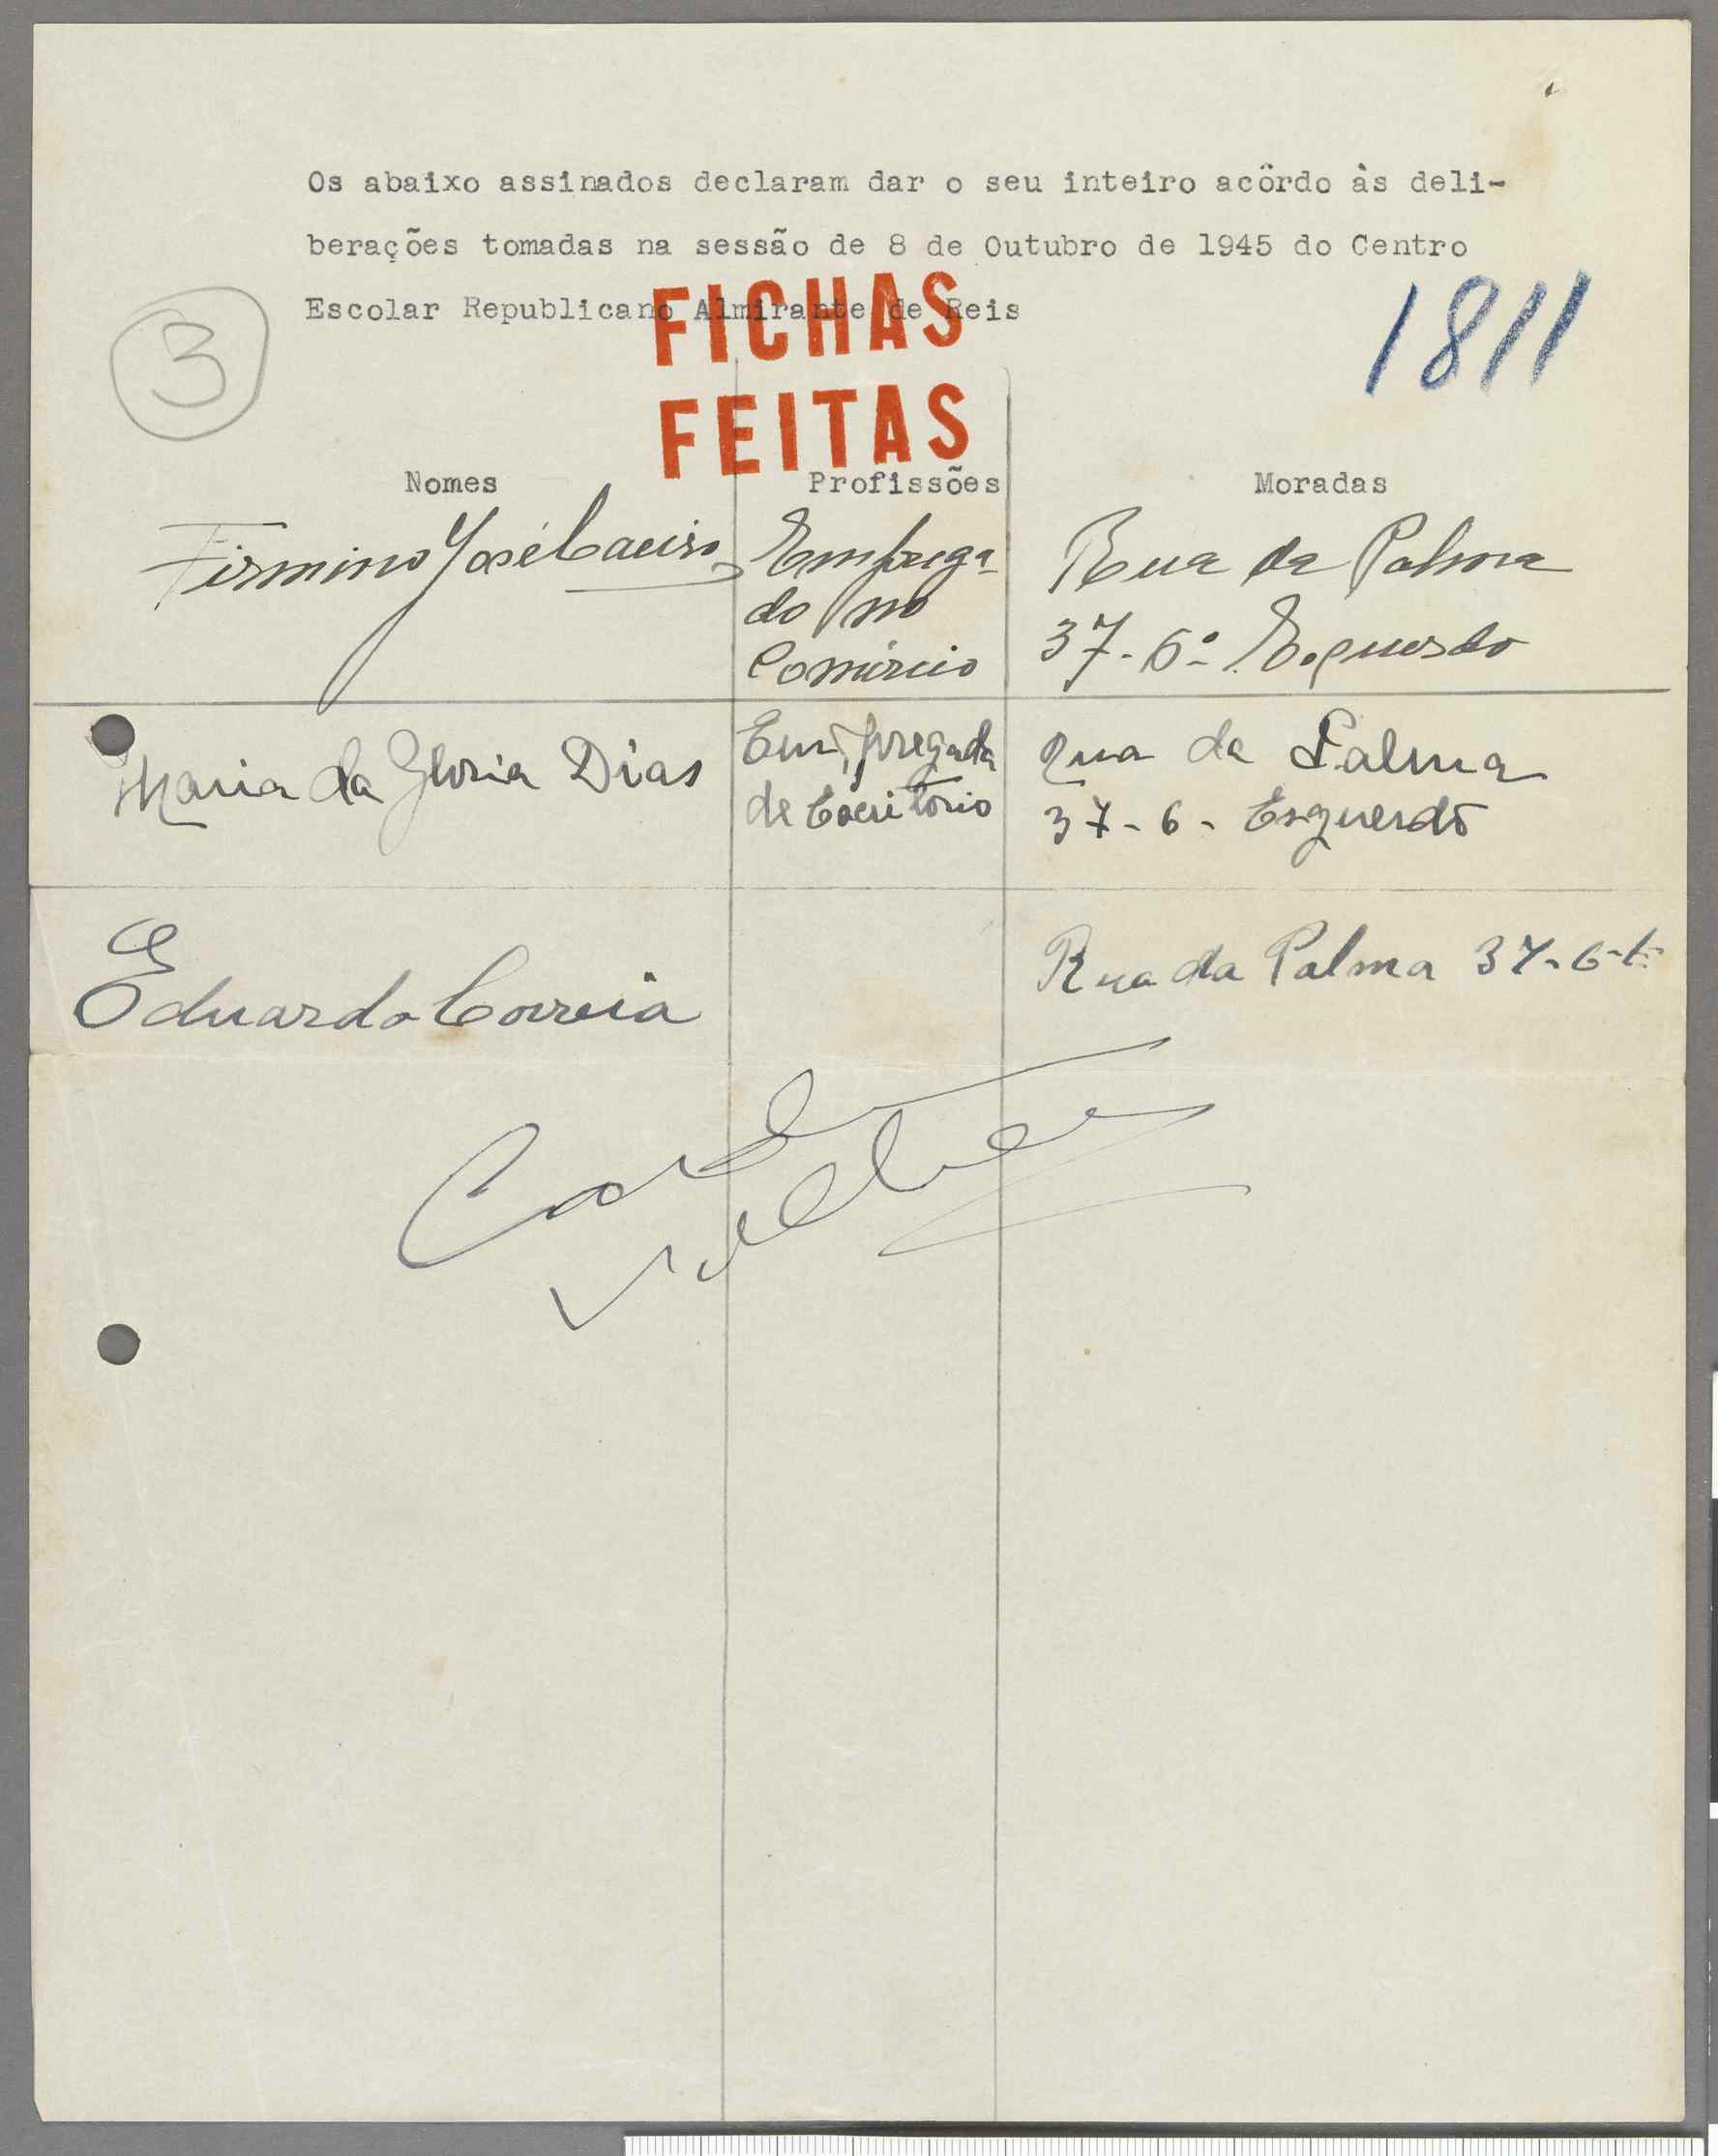 Os abaixo assinados declaram dar o seu inteiro acôrdo às deli-
berações tomadas na sessão de 8 de Outubro de 1945 do Centro
Escolar Republicano Almirante de Reis
FICHAS
FEITAS
3
1811
Nomes Profissões Moradas
Firmino José Emprega- Rua da Palma
do no 37-6º Esquerdo
Comércio
Maria da Gloria Dias Empregada Rua da Palma
de Escritório 37-6- Esquerdo
Eduardo Correia Rua da Palma 37-6-